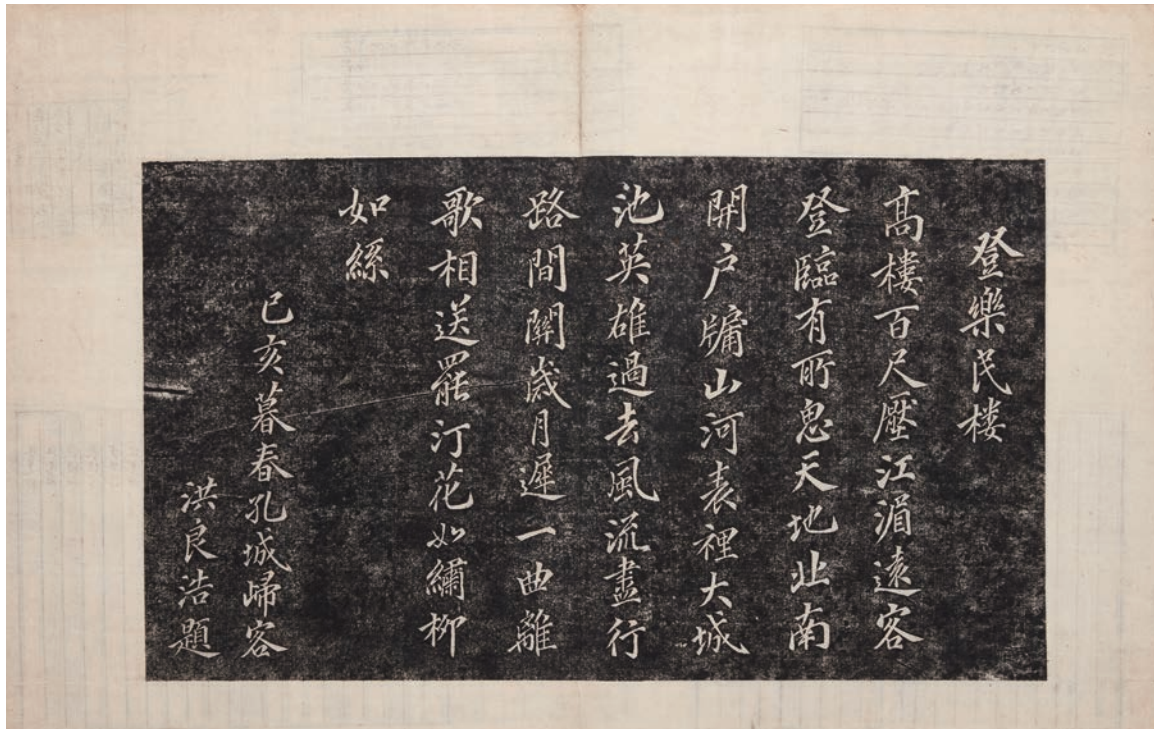 登樂民樓
高樓百尺壓江湄遠客
登臨有所思天地北南
開户牖山河表裡大城
池英雄過去風流盡行
路間關歲月遲一曲離
歌相送罷汀花如繡柳
如絲
己亥暮春孔城歸客
洪良浩題